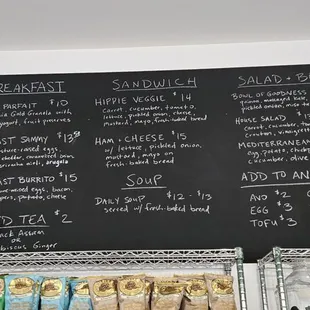 REAKFAST
PARFAIT $10
Gold Granola with
yogurt, fruit preserves
AST SAMMY $13.50
ture-raised eggs,
cheddar, caramelized onion
sriracha aioli, arugula
AST BURRITO $15
ure-raised eggs, bacon,
pers, potato, cheese
D TEA $2
ack Assam
OR
ibiscus Ginger
SANDWICH
HIPPIE VEGGIE $14
Carrot, cucumber, tomato,
lettuce, pickled onion, cheese,
mustard, mayo, fresh-baked bread
HAM + CHEESE $15
w/ lettuce, pickled onion,
mustard, mayo on
fresh-baked bread
SOUP
DAILY SOUP $12 - $13
served w/ fresh-baked bread
SALAD + B
BOWL OF GOODNESS
quinoa, massaged kale,
pickled onion, miso
HOUSE SALAD $13
Carrot, cucumber,
crouton, vinaigrett
MEDITERRANEAN
Egg, potato, chickp
cucumber, olive
ADD TO AN
AVO $2
EGG $3
TOFU $3